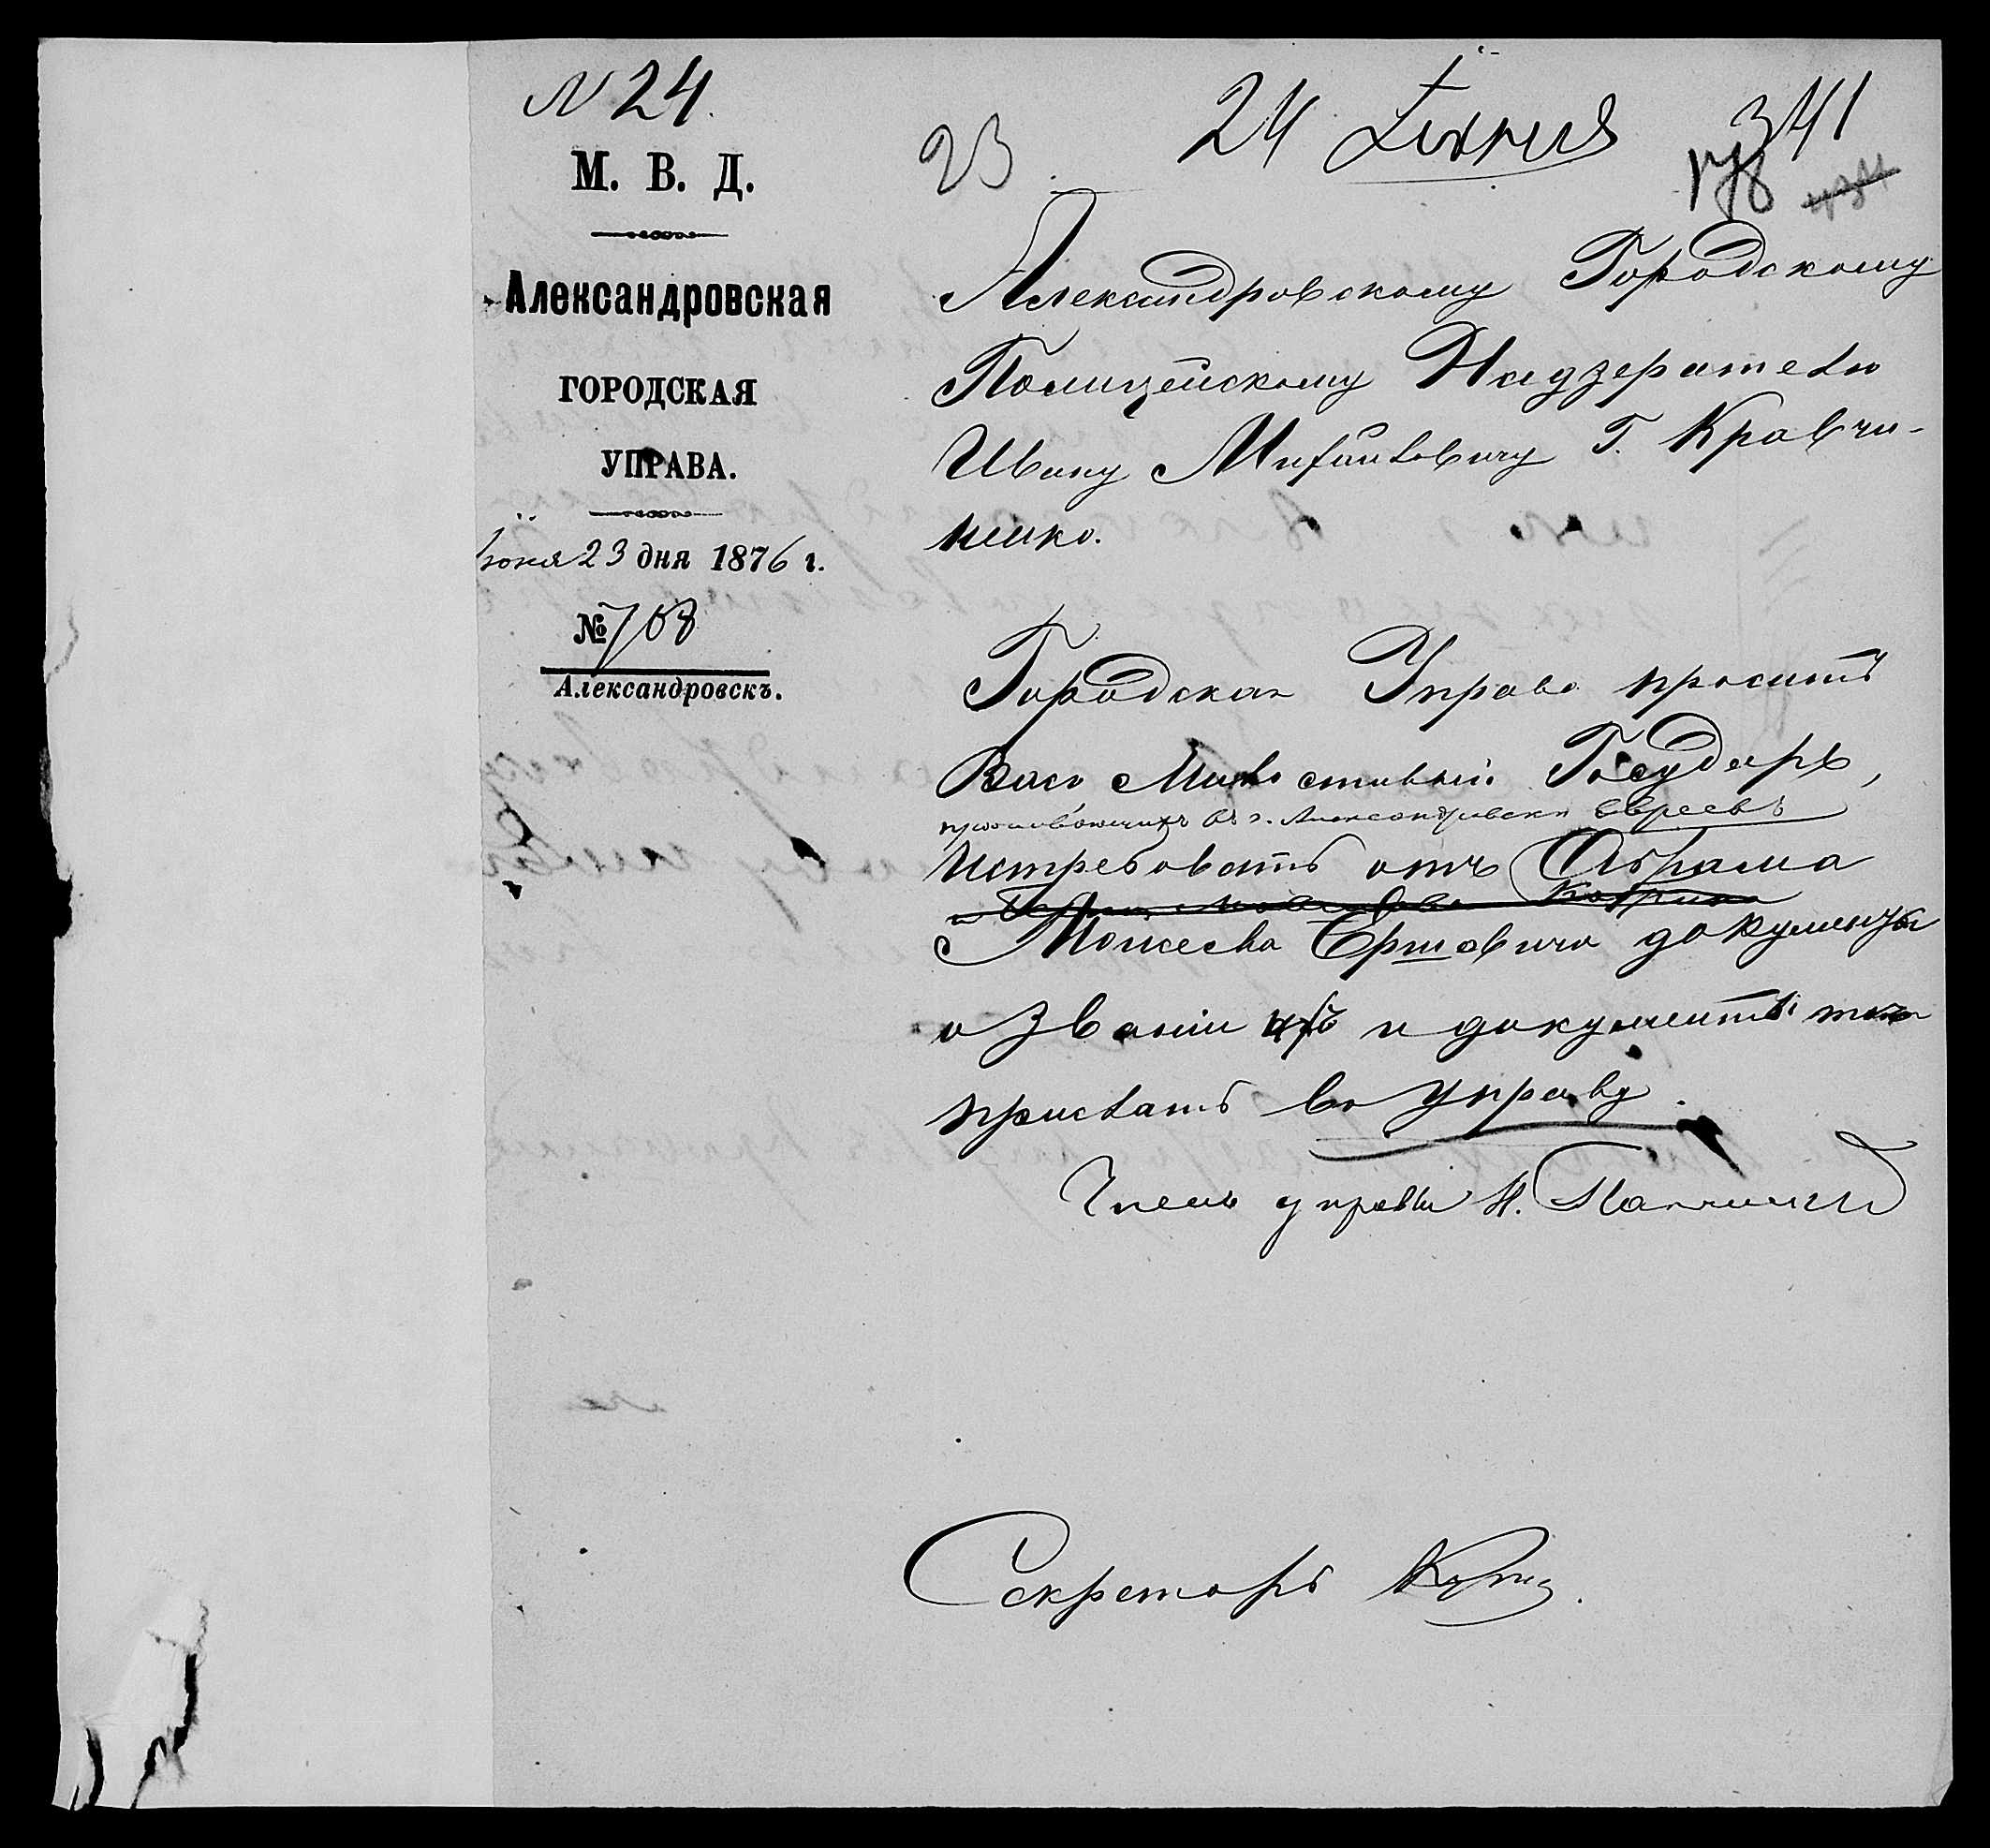 N 24.
М. В. Д.
Александровская
ГОРОДСКАЯ
УПРАВА.
Іюня 23 дня 1876 г.
№ 708
Александровскъ.
23
24 Іюня
341
178
Александровскому Городскому
Полицейскому Надзерателю
Ивану Михайловичу Г. Кравчи-
ненко.
Городская Управа проситъ
Васъ Милостивый Государь,
проживающихъ въ г. Александровскѣ Евреевъ
истребовать отъ Абрама
Мошеева Ершовича документы
о званіи ихъ и документы
прислать въ Управу.
Членъ управы Н.
Секретарь